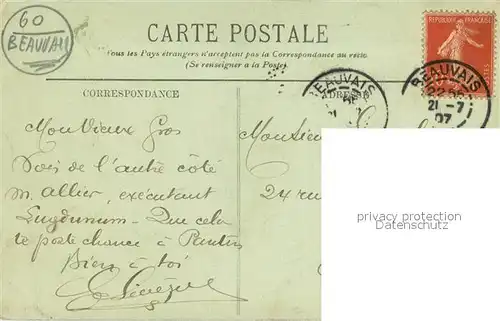 60
BEAUVAI
CARTE POSTALE
RÉPUBLIQUE FRANÇAISE
Tous les Pays étrangers n'acceptent pas la Correspondance au recto
(Se renseigner à la Poste)
CORRESPONDANCE
ADRESSE
BEAUVAIS
BEAUVAIS
21-7
07
Mon Vieux Gros
Vois de l'autre côté
M. Allier, exécutant
Lugdunum - Que cela
te porte chance à Pantin
Bien à toi
Monsieur
24 rue
privacy protection
Datenschutz